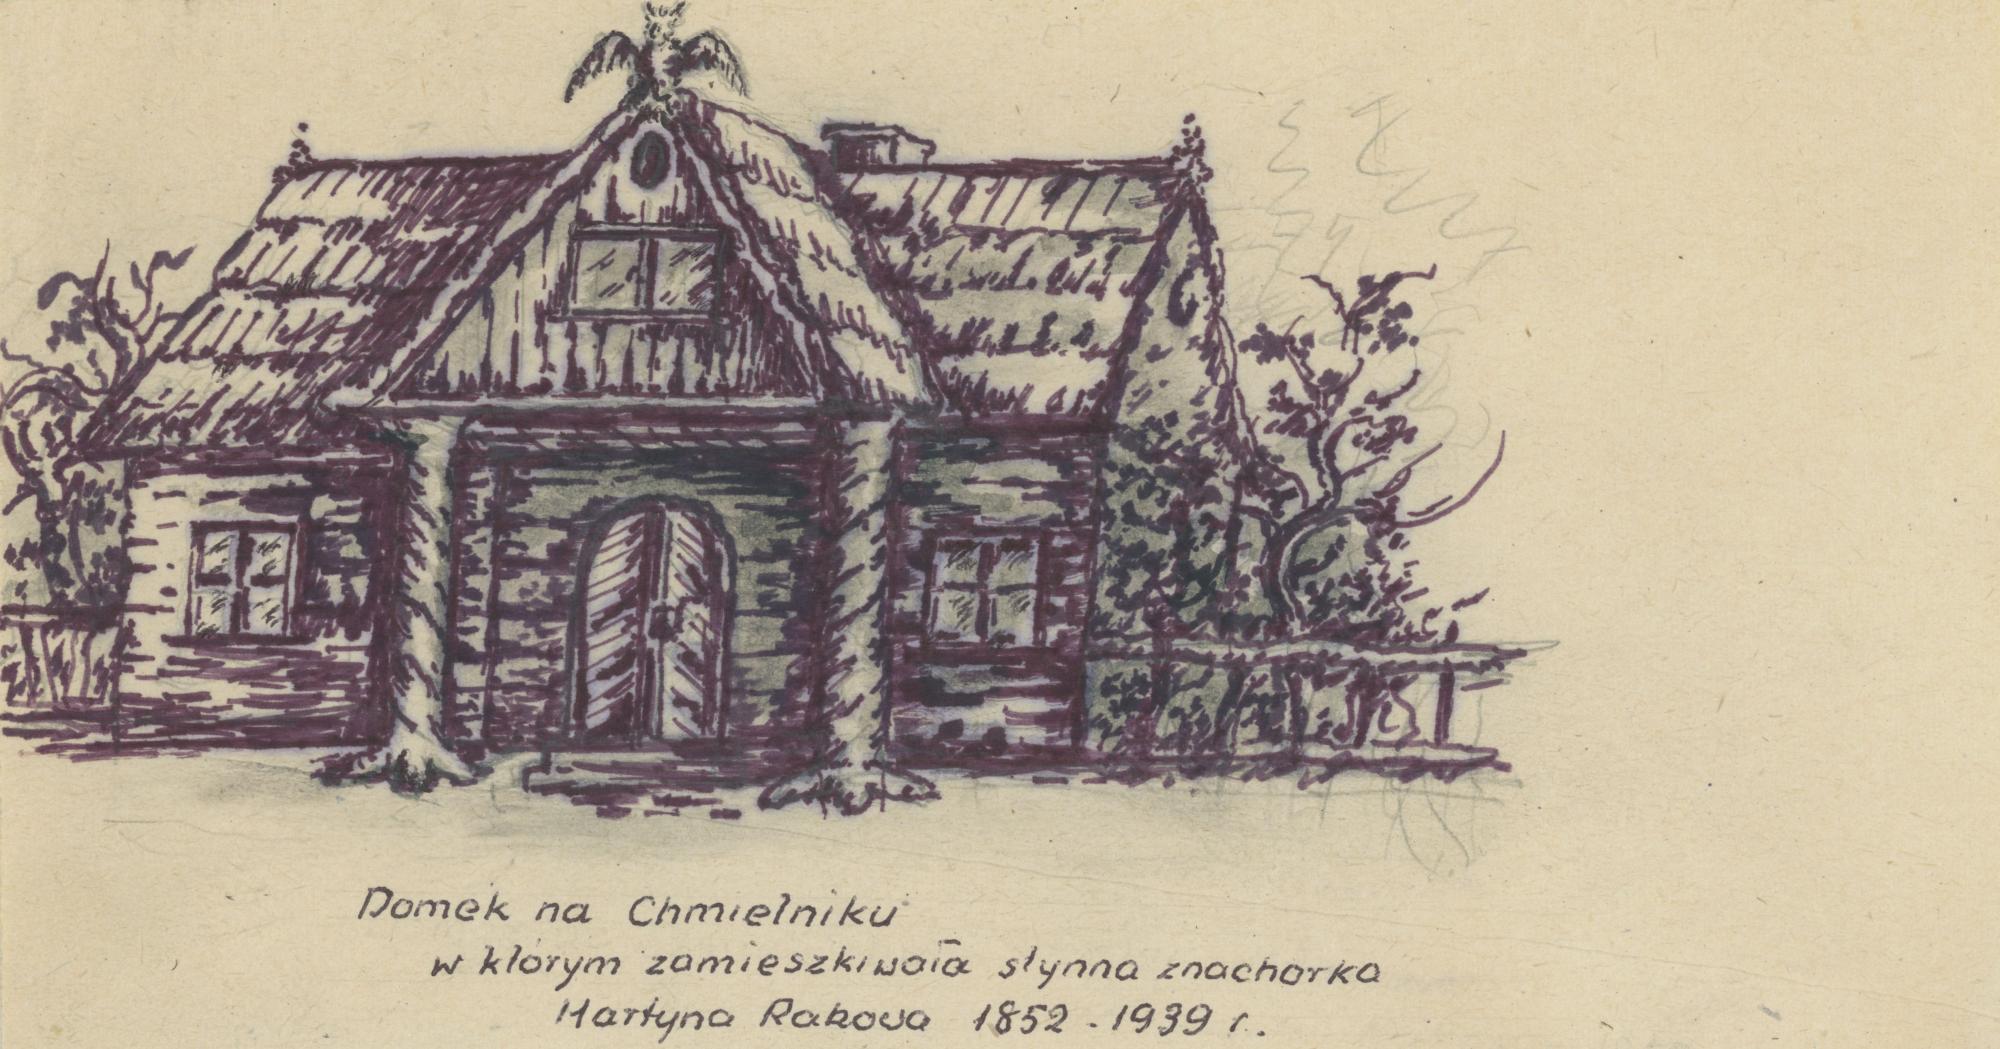 Domek na Chmielniku
w którym zamieszkiwała słynna znachorka
Martyna Rakowa 1852 - 1939 r.